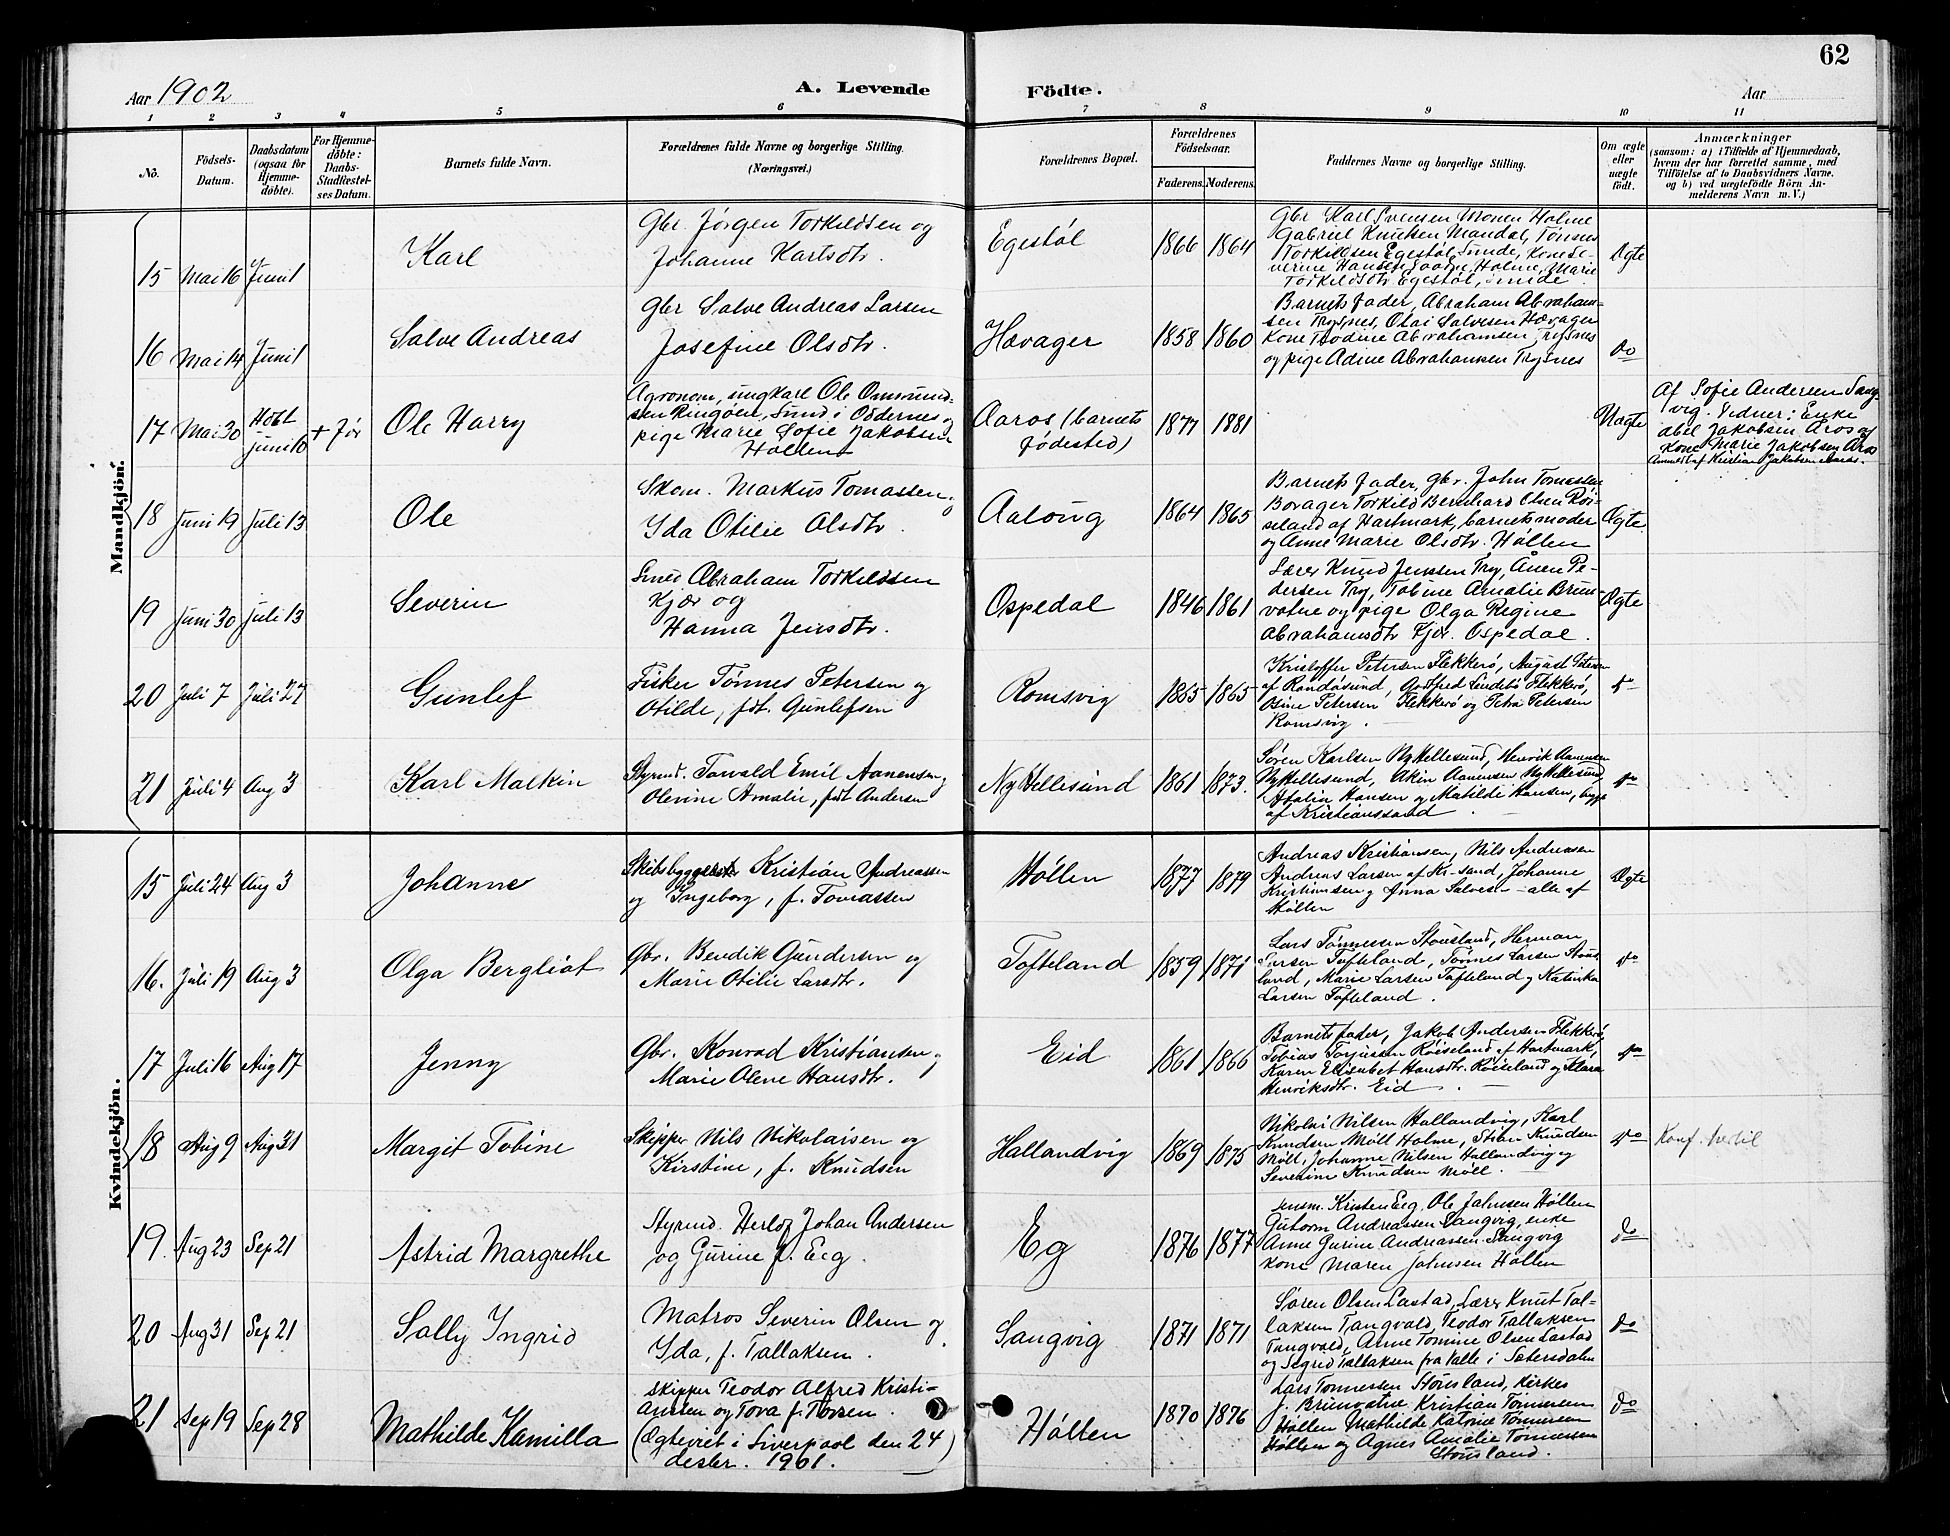 62
Aar 1902
A. Levende Födte.
Aar
1 2 3 4 5 6 7 8 9 10 11
No.
Födsels-Datum.
Daabsdatum (ogsaa for Hjemme-döbte).
For Hjemme-döbte: Daabs-Stadfæstel-ses Datum.
Barnets fulde Navn.
Forældrenes fulde Navne og borgerlige Stilling.
(Næringsvei.)
Forældrenes Bopæl.
Forældrenes Födselsaar.
Faderens. Moderens.
Faddernes Navne og borgerlige Stilling.
Om ægte eller uægte födt.
Anmærkninger
(saasom: a) i Tilfælde af Hjemmedaab, hvem der har forrettet samme, med Tilföielse af to Daabsvidners Navne. og b) ved uægtefödte Börn An-melderens Navn m. V.)
Mandkjön.
15 Mai 16 Juni 1
Karl
Gbr Jørgen Torkildsen og
Johanne Karlsdtr.
Egestøl
1866 1864
Gbr Karl Svensen Monen Holme
Gabriel Knutsen Mandal, Tønnes
Torkildsen Egestøl, Sunde, Kone Se-
verine Hansen Holme, Marie
Torkildsdtr Egestøl, Sunde.
Ægte
16 Mai 14 Juni 1
Salve Andreas
Gbr Salve Andreas Larsen
Josefine Olsdtr.
Hævager
1858 1860
Barnets fader, Abraham Abraham-
sen Trysnes, Olai Salvesen Hævager
Kone Teodine Abrahamsen, Trysnes
og pige Adine Abrahamsen Trysnes
do
17 Mai 30 Høbt Juni 10 + før
Ole Harry
Agronom, ungkarl Ole Ommund-
sen Ringøen, Sund i Oddernes og
pige Marie Sofie Jakobsen
Høllen
Aaros (barnets
fødested)
1877 1881
Uægte
Af Sofie Andersen Sang
vig. Vidner: Enke
Abel Jakobsen Aros og
Kone Marie Jakobsen Aros
Anmeldt af Kristian Jakobsen Aaros.
18 Juni 19 Juli 13
Ole
Skom. Markus Tomassen og
Ida Otilie Olsdtr.
Aaloug
1864 1865
Barnets fader, Gbr. John Tomassen
Bovager Torkild Bernhard Olsen Røi-
seland af Hartmark, barnets moder
og Anne Marie Olsdtr. Høllen
Ægte
19 Juni 30 Juli 13
Severin
Smed Abraham Torkildsen
Kjær og
Hanna Jensdtr.
Ospedal
1846 1861
Lærer Knud Jenssen Try, Ånen Pe-
dersen Try, Tobine Amalie Brun-
vatne og pige Olga Regine
Abrahamsdtr Kjær. Ospedal.
Ægte
20 Juli 7 Juli 27
Gunlef
Fisker Tønnes Petersen og
Otilde, født Gunlefsen
Romsvig
1865 1865
Kristoffer Petersen Flekkerø, August Petersen
af Randøsund, Godtfred Lindebø Flekkerø,
Oline Petersen Flekkerø og Petra Petersen
Romsvig.
do
21 Juli 4 Aug 3
Karl Malkin
Styrmd. Torvald Emil Aanensen og
Olevine Amalie, født Andersen
Ny Hellesund
1861 1873.
Søren Karlsen Ny Hellesund, Henrik Aanensen
Ny Hellesund, Akin Aanensen Ny Hellesund,
Atalia Hansen og Matilde Hansen, begge
af Kristianssand
do
Kvindekjön.
15 Juli 24 Aug 3
Johanne
Skibsbygger Kristian Andreassen
og Ingeborg, f. Tomassen
Høllen
1877 1879
Andreas Kristiansen, Nils Andreasen
Andreas Larsen af Kr-sand, Johanne
Kristiansen og Anna Salvesen - alle af
Høllen
Ægte
16. Juli 19 Aug 3
Olga Bergliot
Gbr. Bendik Gundersen og
Marie Otilie Larsdtr.
Tofteland
1859 1871
Lars Tønnessen Stousland, Herman
Larsen Tofteland, Tønnes Larsen Stous-
land, Marie Larsen Tofteland og Katinka
Larsen Tofteland.
do
17 Juli 16 Aug 17
Jenny
Gbr. Konrad Kristiansen og
Marie Olene Hansdtr.
Eid
1861 1866
Barnets fader, Jakob Andersen Flekkerø,
Tobias Torjussen Røiseland af Hartmark,
Karen Elisabet Hansdtr. Røiseland og Klara
Henriksdtr. Eid.
do
18 Aug 9 Aug 31
Margit Tobine
Skipper Nils Nikolaisen og
Kirstine, f. Knudsen
Hallandvig
1869 1875
Nikolai Nilsen Hallandvig, Karl
Knudsen Møll Holme, Stian Knudsen
Møll, Johanne Nilsen Hallandvig og
Severine Knudsen Møll.
do
Konf.
19. Aug 23 Sep 21
Astrid Margrethe
Styrmd. Herlof Johan Andersen
og Gurine f. Eeg.
Eg
1876 1877
Kristen Eeg, Ole Jahnsen Høllen
Gutorm Andreassen Langvig, enke
Anne Gurine Andreassen Langvig
kone Maren Jahnsen Høllen
do
20 Aug 31 Sep 21
Sally Ingrid
Matros Severin Olsen og
Ida, f. Tallaksen.
Langvig
1871 1871
Søren Olsen Lastad, Lærer Knut Tal-
laksen Tangvald, Teodor Tallaksen
Tangvald, Anne Tomine Olsen Lastad
og Sigrid Tallaksen fra Valle i Sætersdalen
do
21 Sep 19 Sep 28
Mathilde Kamilla
Skipper Teodor Alfred Kristi-
ansen og Tova f. Torsen.
(Ægteviet i Liverpool den 24
desbr. 1901.)
Høllen
1870 1876
Lars Tønnessen Stousland, Kirkes
j. Brunvatne Kristian Tønnessen
Høllen Mathilde Katrine Tønnessen
Høllen og Agnes Amalie Tønnessen
Stousland.
do